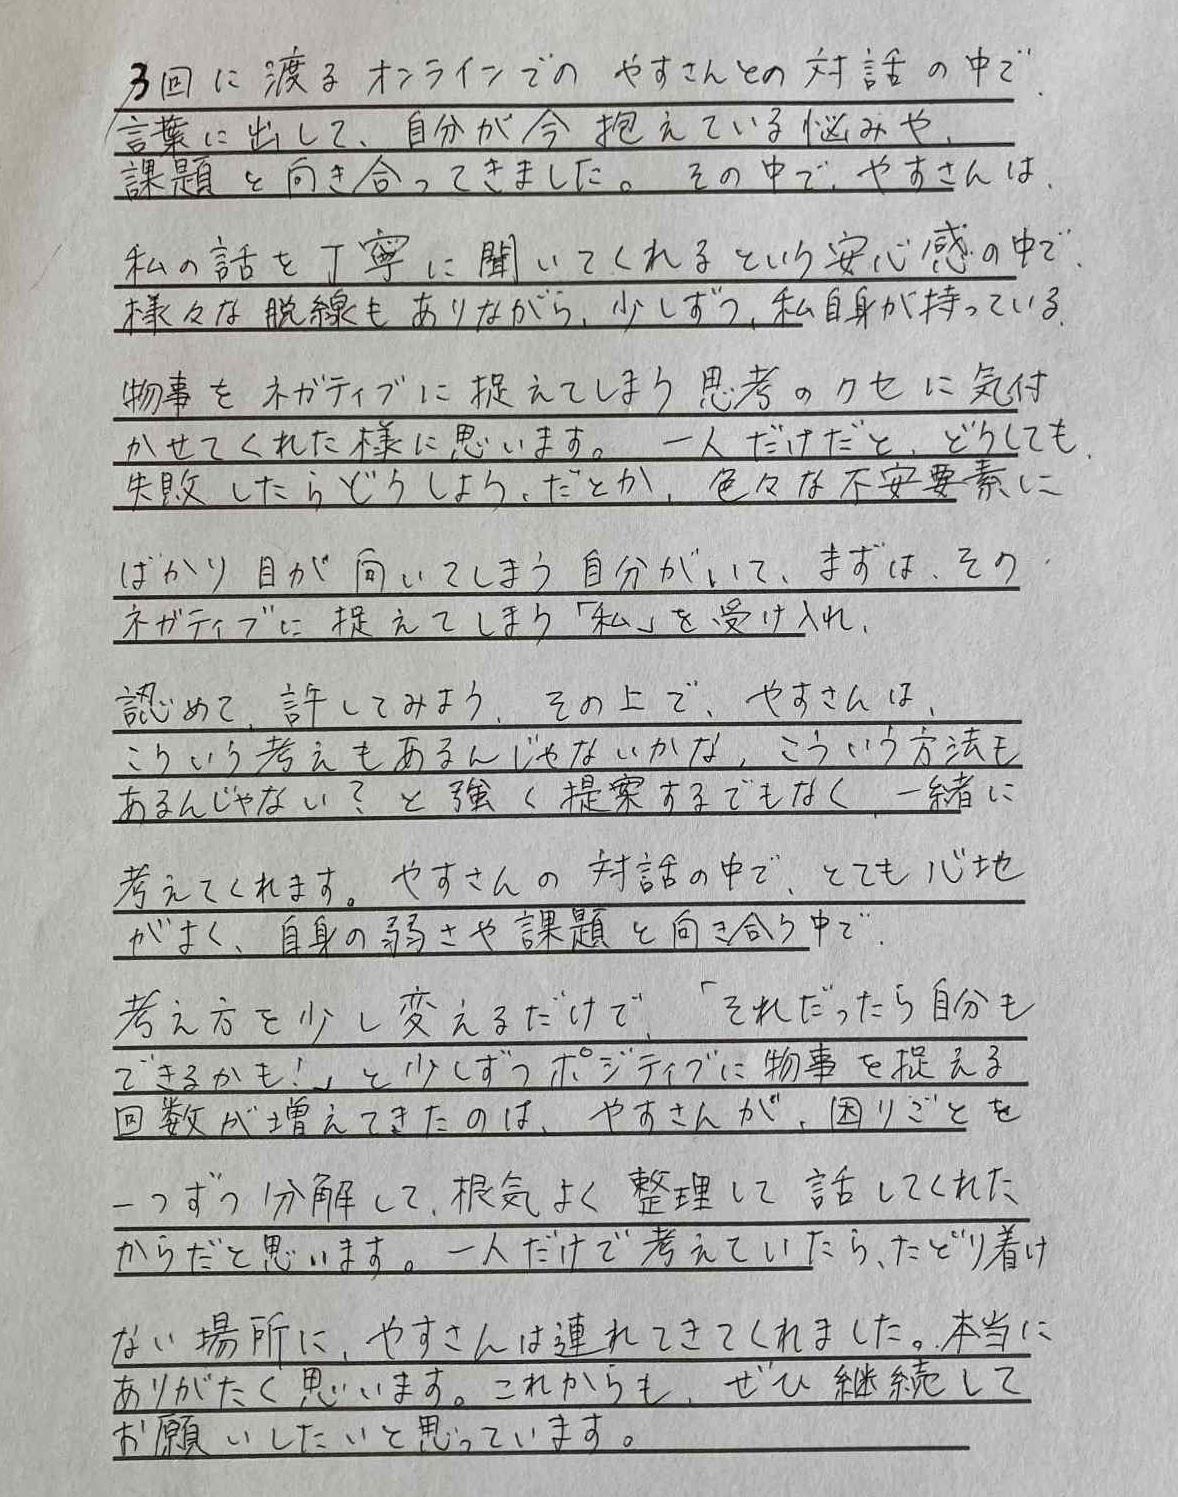 3回に渡るオンラインでの やすさんとの対話の中で、
言葉に出して、自分が今抱えている悩みや、
課題と向き合ってきました。 その中で、やすさんは、
私の話を丁寧に聞いてくれるという安心感の中で、
様々な脱線もありながら、少しずつ、私自身が持っている、
物事をネガティブに捉えてしまう思考のクセに気付
かせてくれた様に思います。 一人だけだと、どうしても、
失敗したらどうしよう、だとか、色々な不安要素に
ばかり目が向いてしまう自分がいて、まずは、その
ネガティブに捉えてしまう「私」を受け入れ、
認めて、許してみよう、その上で、やすさんは、
こういう考えもあるんじゃないかな、こういう方法も
あるんじゃない?と強く提案するでもなく、一緒に
考えてくれます。やすさんの対話の中で、とても心地
がよく、自身の弱さや課題と向き合う中で、
考え方を少し変えるだけで、「それだったら自分も
できるかも!」と少しずつポジティブに物事を捉える
回数が増えてきたのは、やすさんが、困りごとを
一つずつ分解して、根気よく整理して話してくれた
からだと思います。一人だけで考えていたら、たどり着け
ない場所に、やすさんは連れてきてくれました。本当に
ありがたく思います。これからも、ぜひ継続して
お願いしたいと思っています。